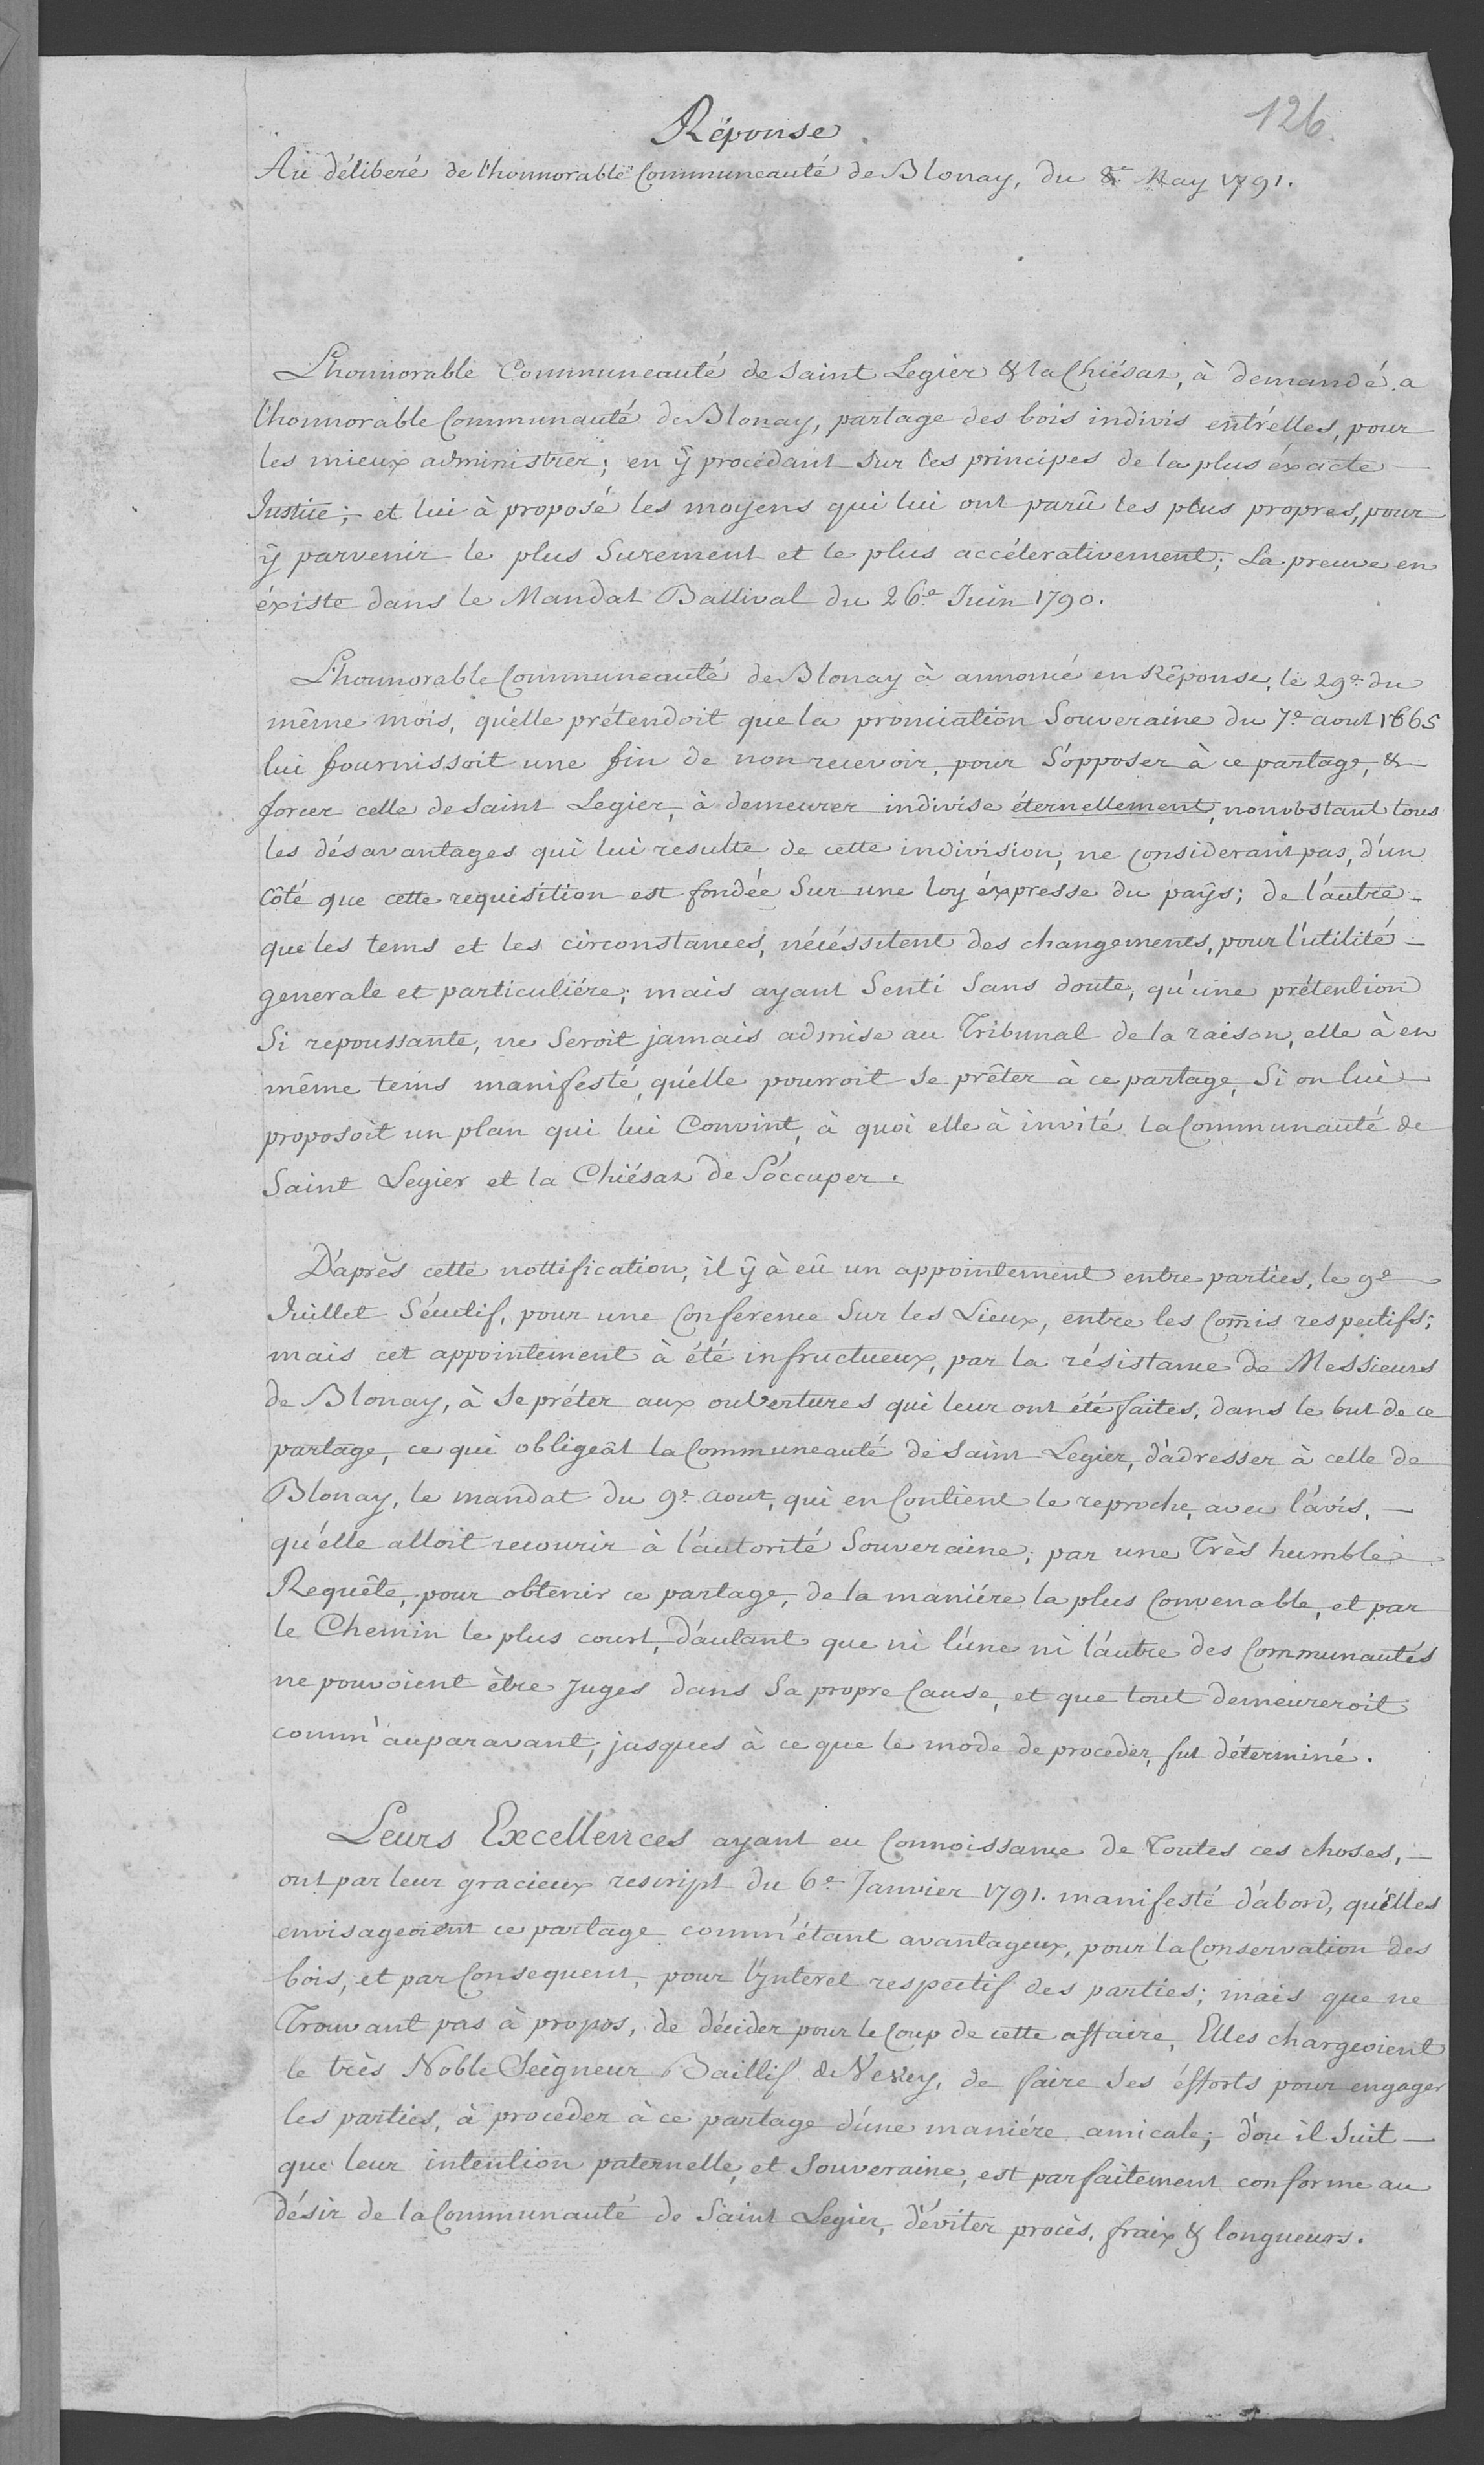 126
Réponse
Au déliberé de l'honnorable Communeauté de Blonay, du 8e May 1791.
L'honnorable Communeauté de Saint Legier & la Chiésaz, à demandé a
l'honnorable Communauté de Blonay, partage des bois indivis entr'elles, pour
les mieux administrer; en ÿ procédant Sur les principes de la plus éxacte —
Justice; et lui à proposé les moyens qui lui ont parû les plus propres, pour
ÿ parvenir le plus Surement et le plus accélerativement; La preuve en
éxiste dans le Mandat Ballival du 26e Juin 1790.
L'honnorable Communeauté de Blonay à annoncé en Réponse, le 29e du
même mois, qu'elle prétendoit que la pronciation Souveraine du 7e aout 1665
lui fournissoit une fin de non recevoir, pour S'opposer à ce partage, &
forcer celle de Saint Legier, à demeurer indivise éternellement, nonobstant tous
les désavantages qui lui resulte de cette indivision, ne considerant pas, d'un
Côté que cette requisition est fondée Sur une loy éxpresse du paÿs; de l'autre —
que les tems et les circonstances, nécéssitent des changements, pour l'utilité —
generale et particuliére; mais ayant Senti Sans doute, qu'une prétention
Si repoussante, ne Seroit jamais admise au Tribunal de la raison, elle à en
même tems manifesté, qu'elle pourroit Se prêter à ce partage, Si on lui —
proposoit un plan qui lui Convint, à quoi elle à invité la Communauté de
Saint Legier et la Chiésaz de S'occuper.
D'après cette nottification, il ÿ à eû un appointement entre parties, le 9e
Juillet Sécutif, pour une Conference Sur les Lieux, entre les Com̄is respectifs;
mais cet appointement à été infructueux, par la résistance de Messieurs
de Blonay, à Se préter aux ouvertures qui leur ont été faites, dans le but de ce
partage, ce qui obligeât la Communeauté de Saint Legier, d'adresser à celle de
Blonay, le mandat du 9e aout, qui en Contient le reproche, avec l'avis, —
qu'elle alloit recourir à l'autorité Souveraine; par une Très humble
Requête, pour obtenir ce partage, de la maniére la plus Convenable, et par
le Chemin le plus court, d'autant que ni l'une ni l'autre des Communautés
ne pouvoient être Juges dans Sa propre Cause, et que tout demeureroit
comm'auparavant, jusques à ce que le mode de proceder, fut déterminé.
Leurs Excellences ayant eu Connoissance de Toutes ces choses, —
ont par leur gracieux rescript du 6e Janvier 1791. manifesté d'abord, qu'Elles
envisageoient ce partage comm'étant avantageux, pour la Conservation des
bois, et par Consequent, pour l'Ynteret respectif des parties; mais que ne
Trouvant pas à propos, de décider pour le Coup de cette affaire, Elles chargeoient
le très Noble Seigneur Baillif de Vevey, de faire Ses éfforts pour engager
les parties, à proceder à ce partage d'une maniére amicale; d'ou il Suit —
que leur intention paternelle, et Souveraine, est parfaitement conforme au
désir de la Communauté de Saint Legier, d'éviter procès, fraix & longueurs.